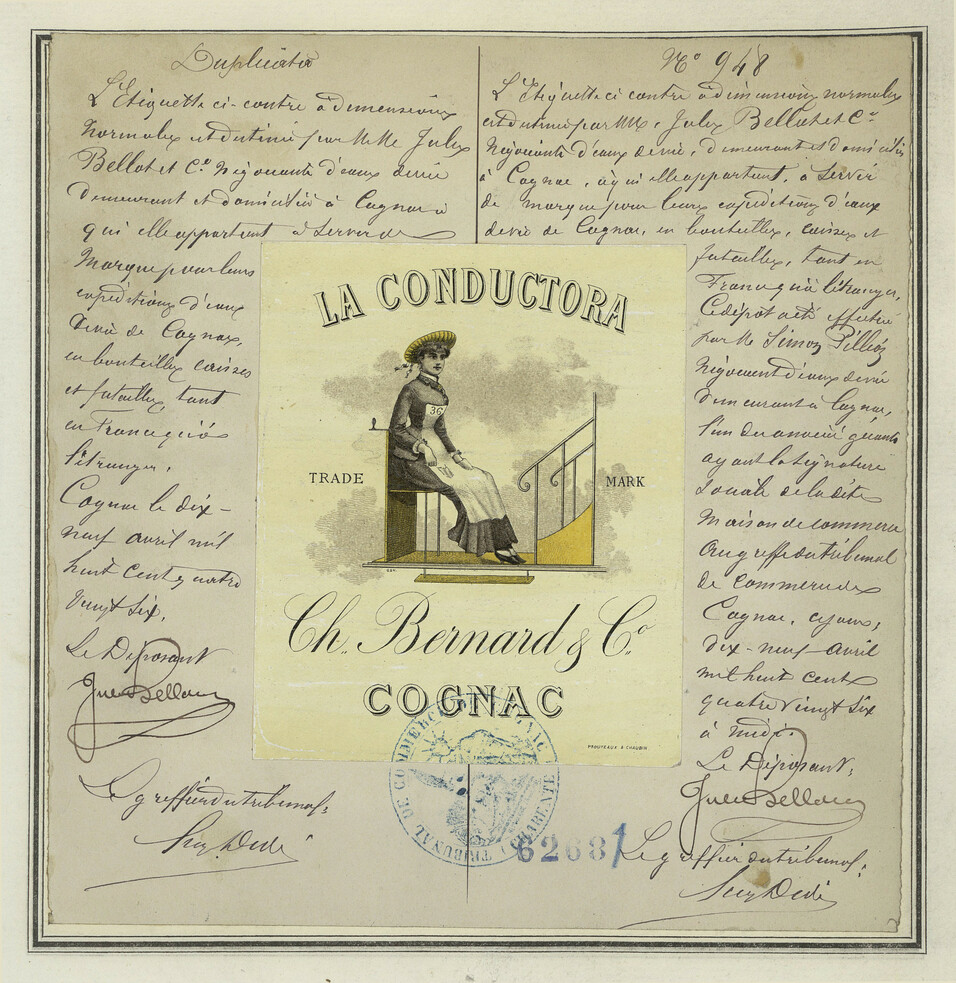 Duplicata
L'Etiquette ci-contre à dimensions
normales est destinée par MM. Jules
Bellot et Cie Négociants d'eaux de vie
demeurant et domiciliés à Cognac à
qui elle appartient à servir de
marque pour leurs
expéditions d'eaux
de vie de Cognac,
en bouteilles caisses
et futailles, tant
en France qu'à
l'étranger.
Cognac le dix-
neuf avril mil
huit cent quatre
vingt six.
Le Déposant
Jules Bellot
Le greffier du tribunal:
N° 948
L'Etiquette ci contre à dimensions normales
est destinée par MM. Jules Bellot et Cie
Négociants d'eaux de vie, demeurant et domiciliés
à Cognac, à qui elle appartient, à servir
de marque pour leurs expéditions d'eaux
de vie de Cognac, en bouteilles, caisses et
futailles, tant en
France qu'à l'étranger.
Ce dépôt a été effectué
par M. Simon
Négociant d'eaux de vie
demeurant à Cognac,
l'un des gérants
ayant la signature
sociale de la dite
maison de commerce
au greffe du tribunal
de commerce de
Cognac, ce jour,
dix-neuf avril
mil huit cent
quatre vingt six
à midi.
Le Déposant:
Jules Bellot
Le greffier du tribunal:
LA CONDUCTORA
36
TRADE MARK
Ch. Bernard & Co.
COGNAC
PROUTEAUX & CHAUBIN
TRIBUNAL DE COMMERCE DE COGNAC CHARENTE
6268